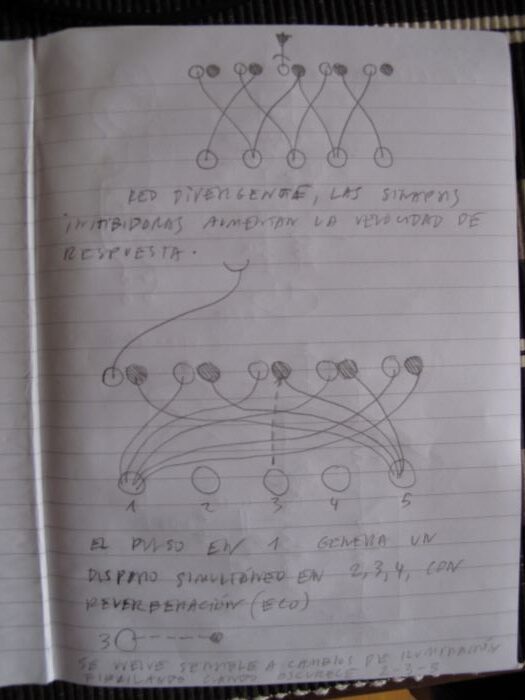 RED DIVERGENTE, LAS SINAPSIS
INHIBIDORAS AUMENTAN LA VELOCIDAD DE
RESPUESTA.
1 2 3 4 5
EL PULSO EN 1 GENERA UN
DISPARO SIMULTÁNEO EN 2,3,4, CON
REVERBERACIÓN (ECO)
3
SE VUELVE SENSIBLE A CAMBIOS DE ILUMINACIÓN
CUANDO OSCURECE 2-3-5